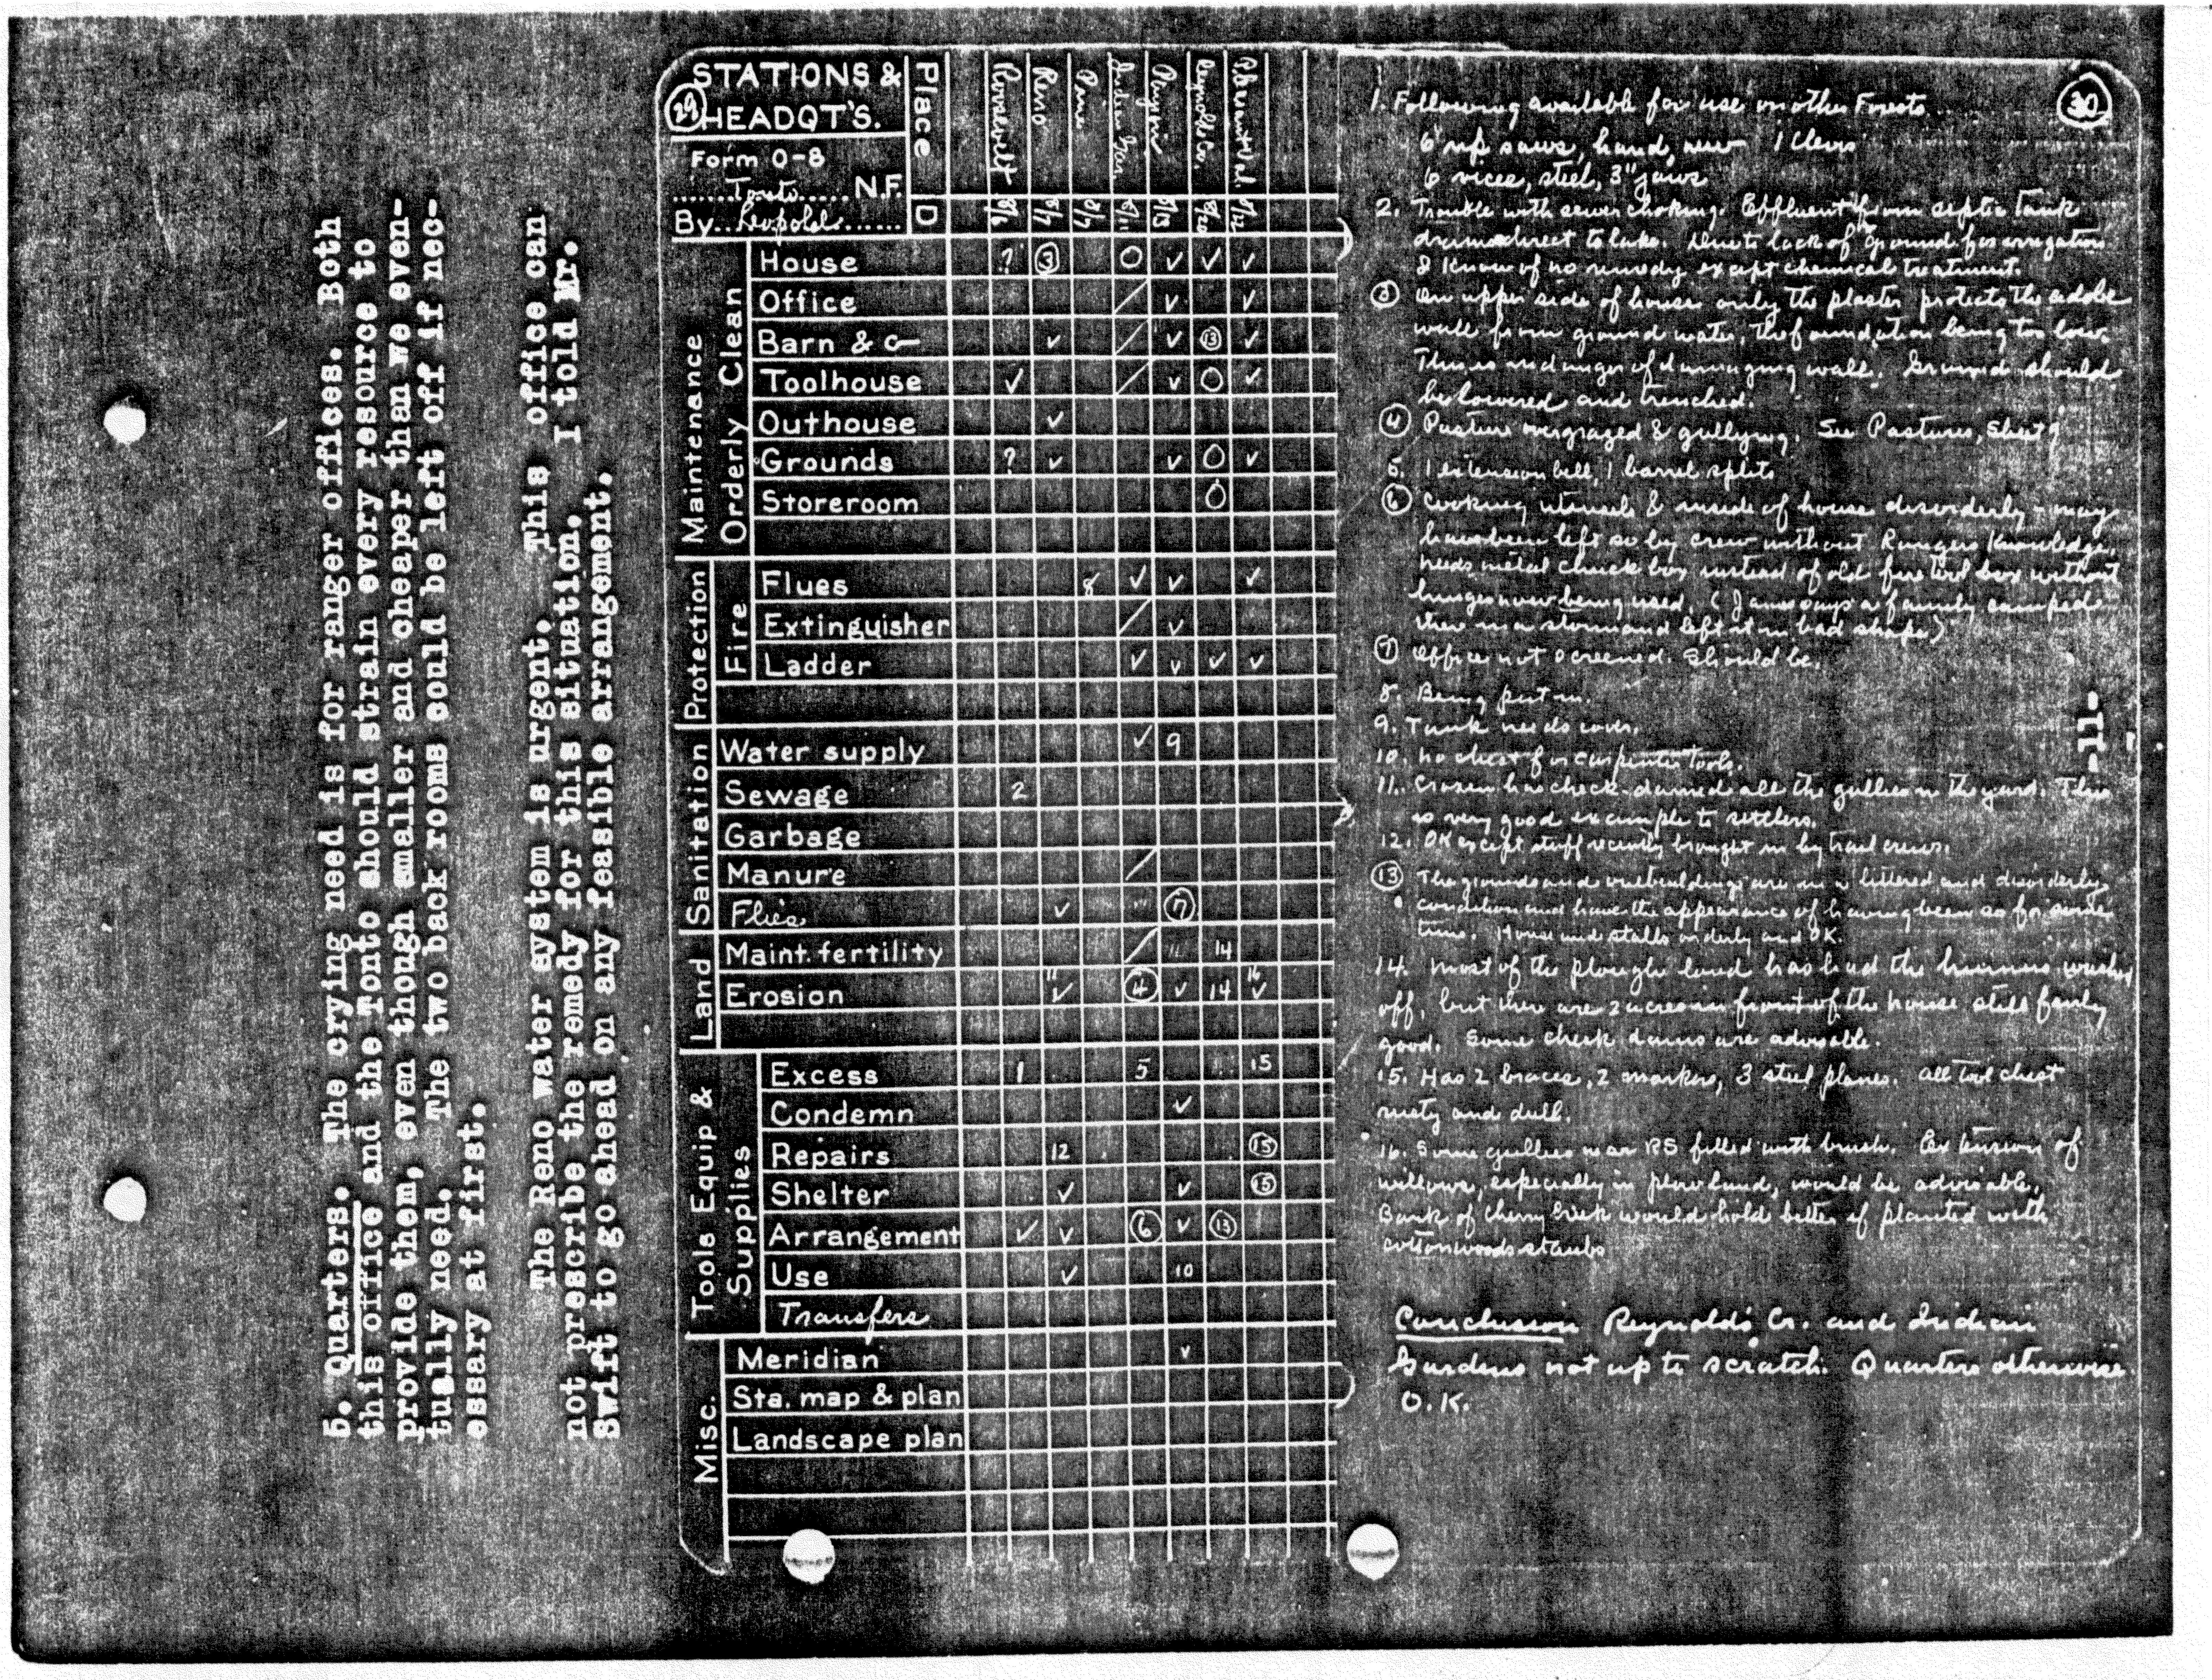 5. Quarters. The crying need is for ranger offices. Both
this office and the Tonto should strain every resource to
provide them, even though smaller and cheaper than we even-
tually need. The two back rooms could be left off if nec-
essary at first.
The Reno water system is urgent. This office can
not prescribe the remedy for this situation. I told Mr.
Swift to go ahead on any feasible arrangement.
-11-
29
STATIONS &
HEADQT'S.
Form O-8
Tonto N.F.
By Leopold
Place Roosevelt Reno Pine Indian Gar Reynolds Cr.
D 8/6 8/7 8/7 8/11
Maintenance
Orderly Clean
House ? 3 O ✓ ✓ ✓
Office / ✓ ✓
Barn & c ✓ / ✓ 13 ✓
Toolhouse ✓ / ✓ O ✓
Outhouse ✓
Grounds ? ✓ ✓ O ✓
Storeroom O
Protection
Fire
Flues 8 ✓ ✓ ✓
Extinguisher / ✓
Ladder ✓ ✓ ✓ ✓
Sanitation
Water supply ✓ 9
Sewage 2
Garbage
Manure /
Flies ✓ " 7
Land
Maint. fertility / 11 14
Erosion 11 ✓ 4 ✓ 14 16 ✓
Tools Equip &
Supplies
Excess 1 5 15
Condemn ✓
Repairs 12 15
Shelter ✓ ✓ 15
Arrangement ✓ ✓ 6 ✓ 13
Use ✓ 10
Transfers
Misc.
Meridian ✓
Sta. map & plan
Landscape plan
30
1. Following available for use on other Forests
6 saws, hand, new 1 Clevis
6 vices, steel, 3" jaws
2. Trouble with sewer choking. Effluent from septic tank
drains direct to lake. Due to lack of ground for irrigation
I know of no remedy except chemical treatment.
3 On upper side of house only the plaster protects the adobe
wall from ground water, the foundation being too low.
This is in danger of damaging wall. Ground should
be lowered and trenched.
4 Pasture overgrazed & gullying. See Pastures, Sheet 9
5. 1 extension bell, 1 barrel splits
6 Cooking utensils & inside of house disorderly - may
have been left so by crew without Rangers knowledge.
needs metal chuck box instead of old fire tool box without
hinges now being used. (James says a family camped
there in a storm and left it in bad shape)
7 Office not screened. Should be.
8. Being put in.
9. Tank needs cover.
10. No chest for carpenter tools.
11. Croxen has check-dammed all the gullies in the yard. This
is very good example to settlers.
12. OK except stuff recently brought in by trail crews.
13 The grounds and outbuildings are in a littered and disorderly
condition and have the appearance of having been so for some
time. House and stalls orderly and OK.
14. Most of the plough land has had the humus washed
off, but there are 2 acres in front of the house still fairly
good. Some check dams are advisable.
15. Has 2 braces, 2 markers, 3 steel planes. All tool chest
rusty and dull.
16. Some gullies near RS filled with brush. Extension of
willows, especially in plow land, would be advisable.
Bank of Cherry Creek would hold better if planted with
cottonwoods
Conclusion Reynolds Cr. and Indian
Gardens not up to scratch. Quarters otherwise
O.K.